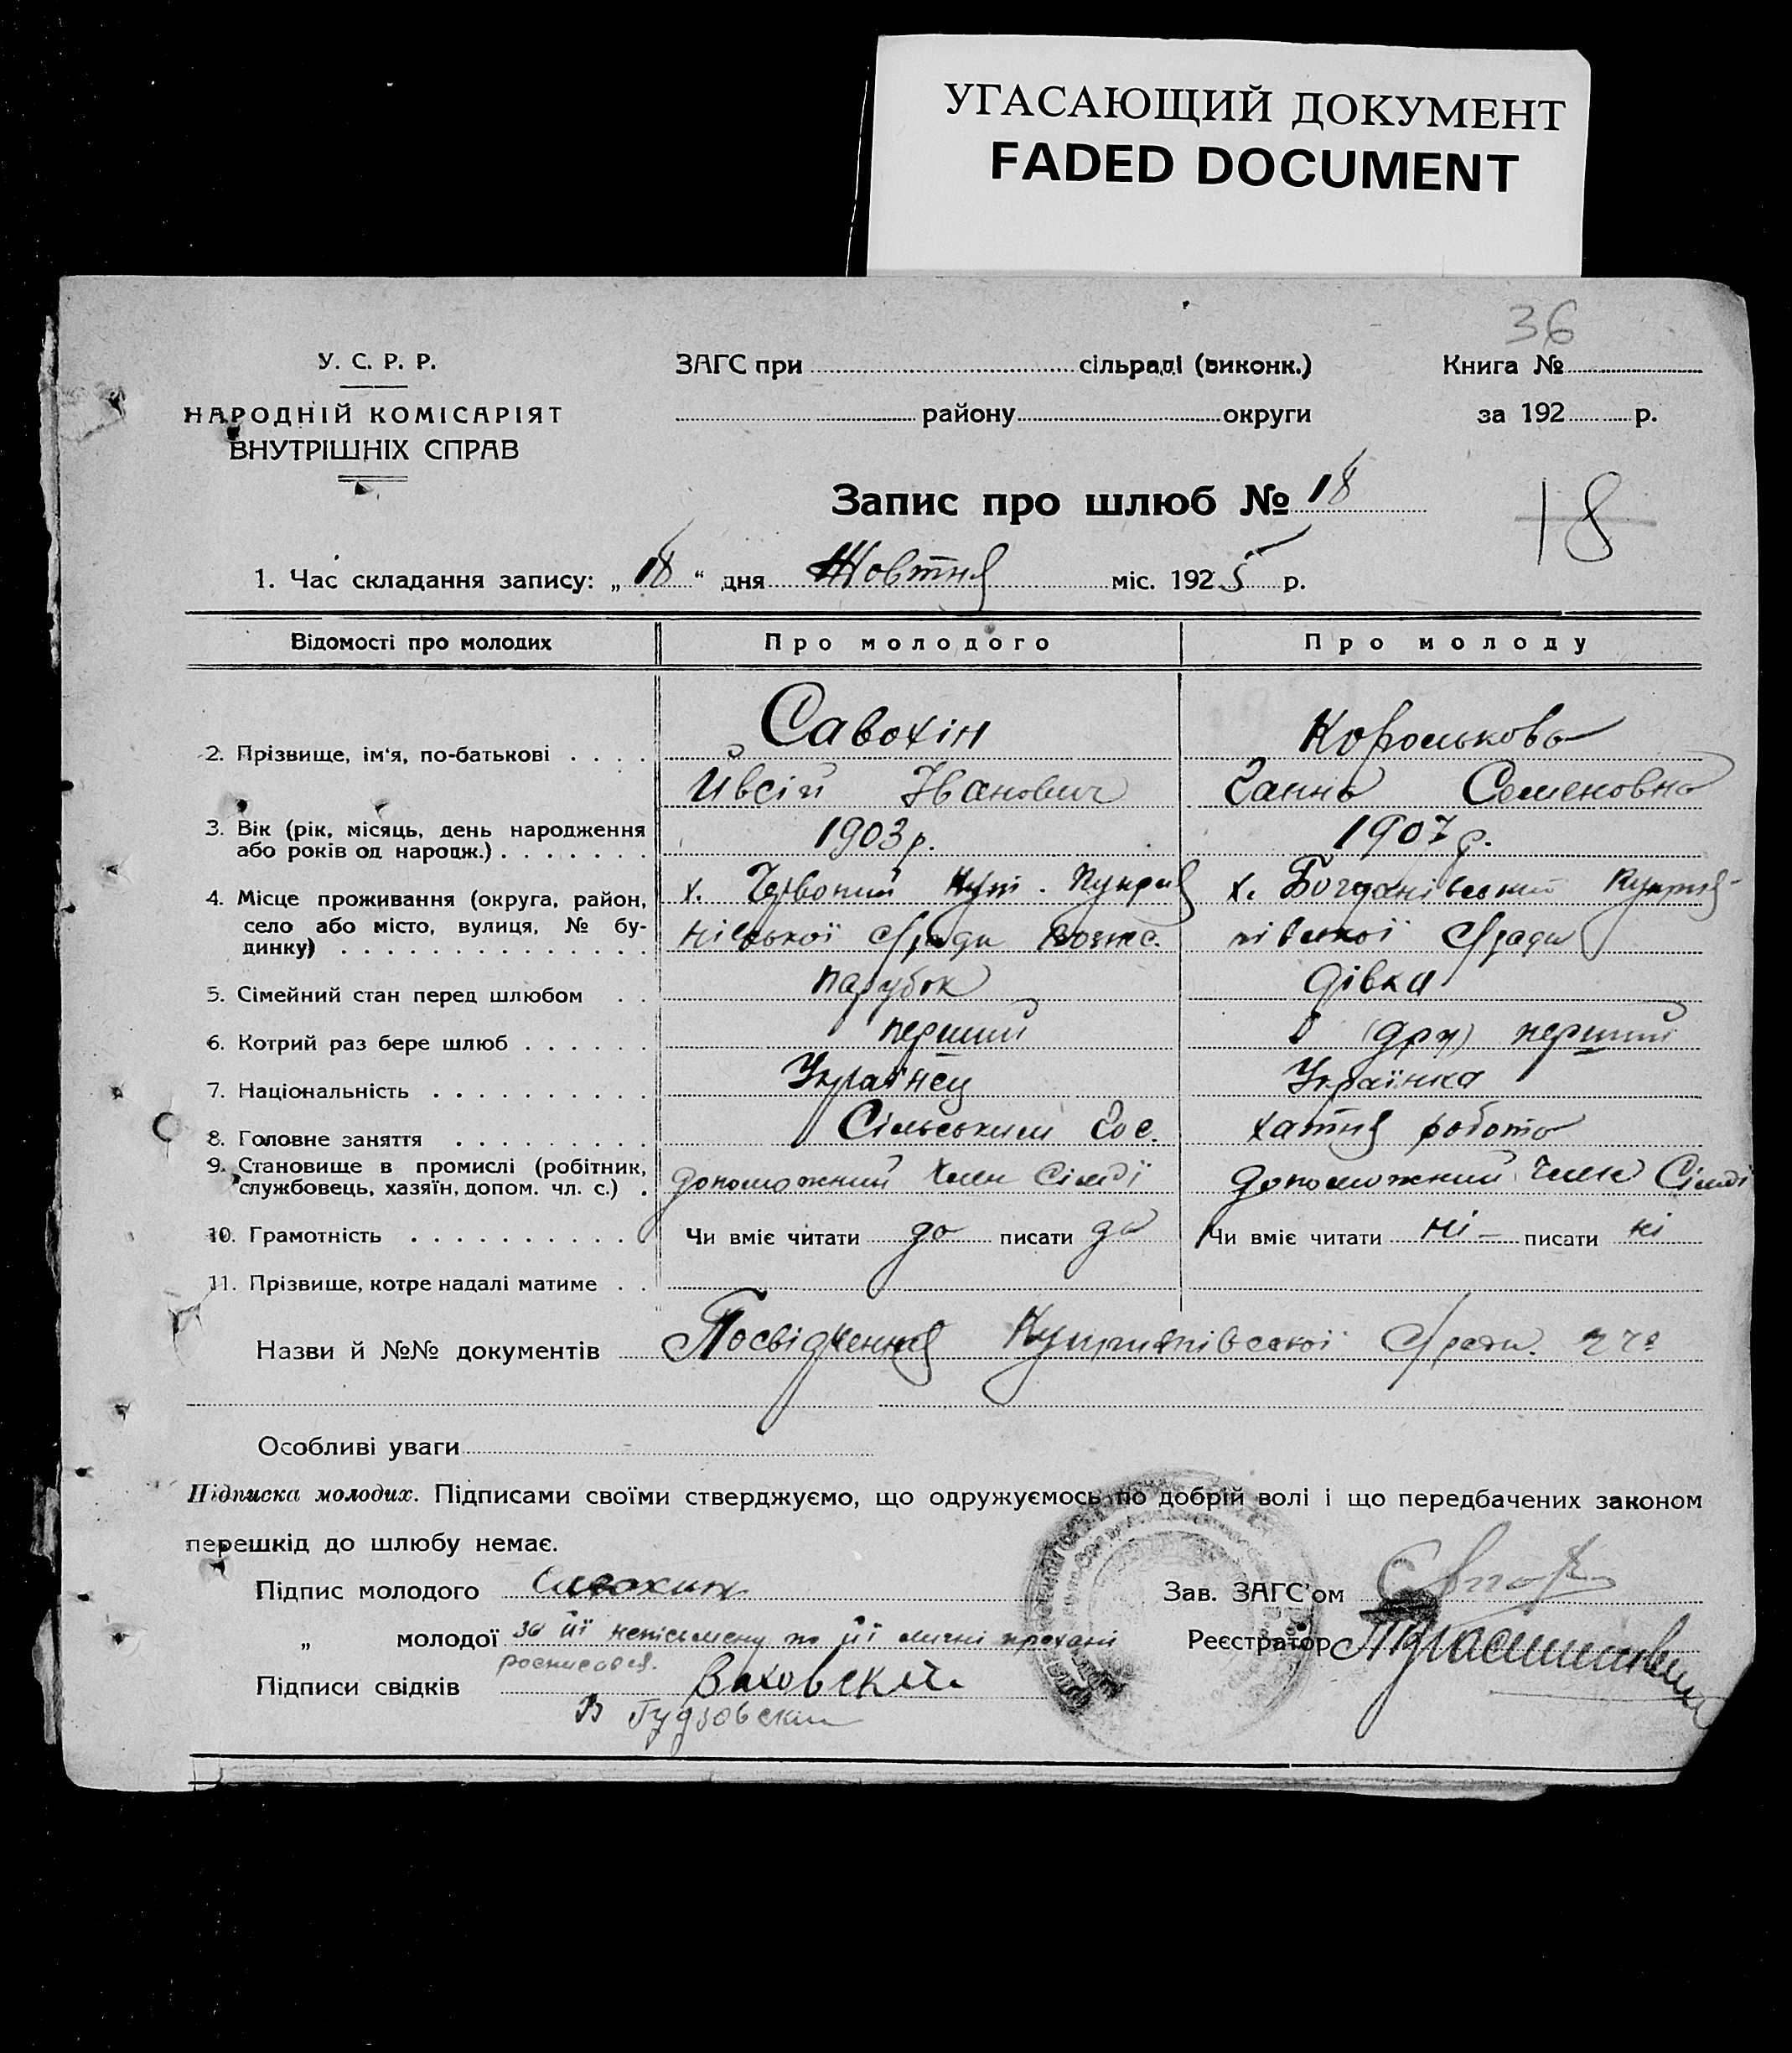 УГАСАЮЩИЙ ДОКУМЕНТ
FADED DOCUMENT
36
У. С. Р. Р.
НАРОДНІЙ КОМІСАРІЯТ
ВНУТРІШНІХ СПРАВ
ЗАГС при сільраді (виконк.)
району округи
Книга №
за 192 р.
Запис про шлюб № 18
18
1. Час складання запису: „18“ дня Жовтня міс. 1925 р.
Відомості про молодих Про молодого Про молоду
2. Прізвище, ім'я, по-батькові . . . . Савохін Королькова
Ивсій Іванович Ганна Семеновна
3. Вік (рік, місяць, день народження
або років од народж.) . . . . . . . 1903 р. 1907 р.
4. Місце проживання (округа, район, х. Червоний Кут. х. Богданівський
село або місто, вулиця, № бу-
динку) . . . . . . . . . . . . . .
5. Сімейний стан перед шлюбом . . парубок дівка
6. Котрий раз бере шлюб . . . . . . перший (дру) перший
7. Національність . . . . . . . . . . Украінец Українка
8. Головне заняття . . . . . . . . . Сільським Гос. хатня робота
9. Становище в промислі (робітник,
службовець, хазяїн, допом. чл. с.) . допоможний Член Сімдї допоможний член Сімді
10. Грамотність . . . . . . . . . . . Чи вміє читати да писати да Чи вміє читати ні — писати ні
11. Прізвище, котре надалі матиме . .
Назви й №№ документів Посвідчення Куприянівської
Особливі уваги
Підписка молодих. Підписами своїми стверджуємо, що одружуємось по добрій волі і що передбачених законом
перешкід до шлюбу немає.
Підпис молодого Савохин
Зав. ЗАГС'ом
„ молодої за її неписьмену по її личні прохані
росписався.
Реєстратор
Підписи свідків Ваховский
В Гудзовский